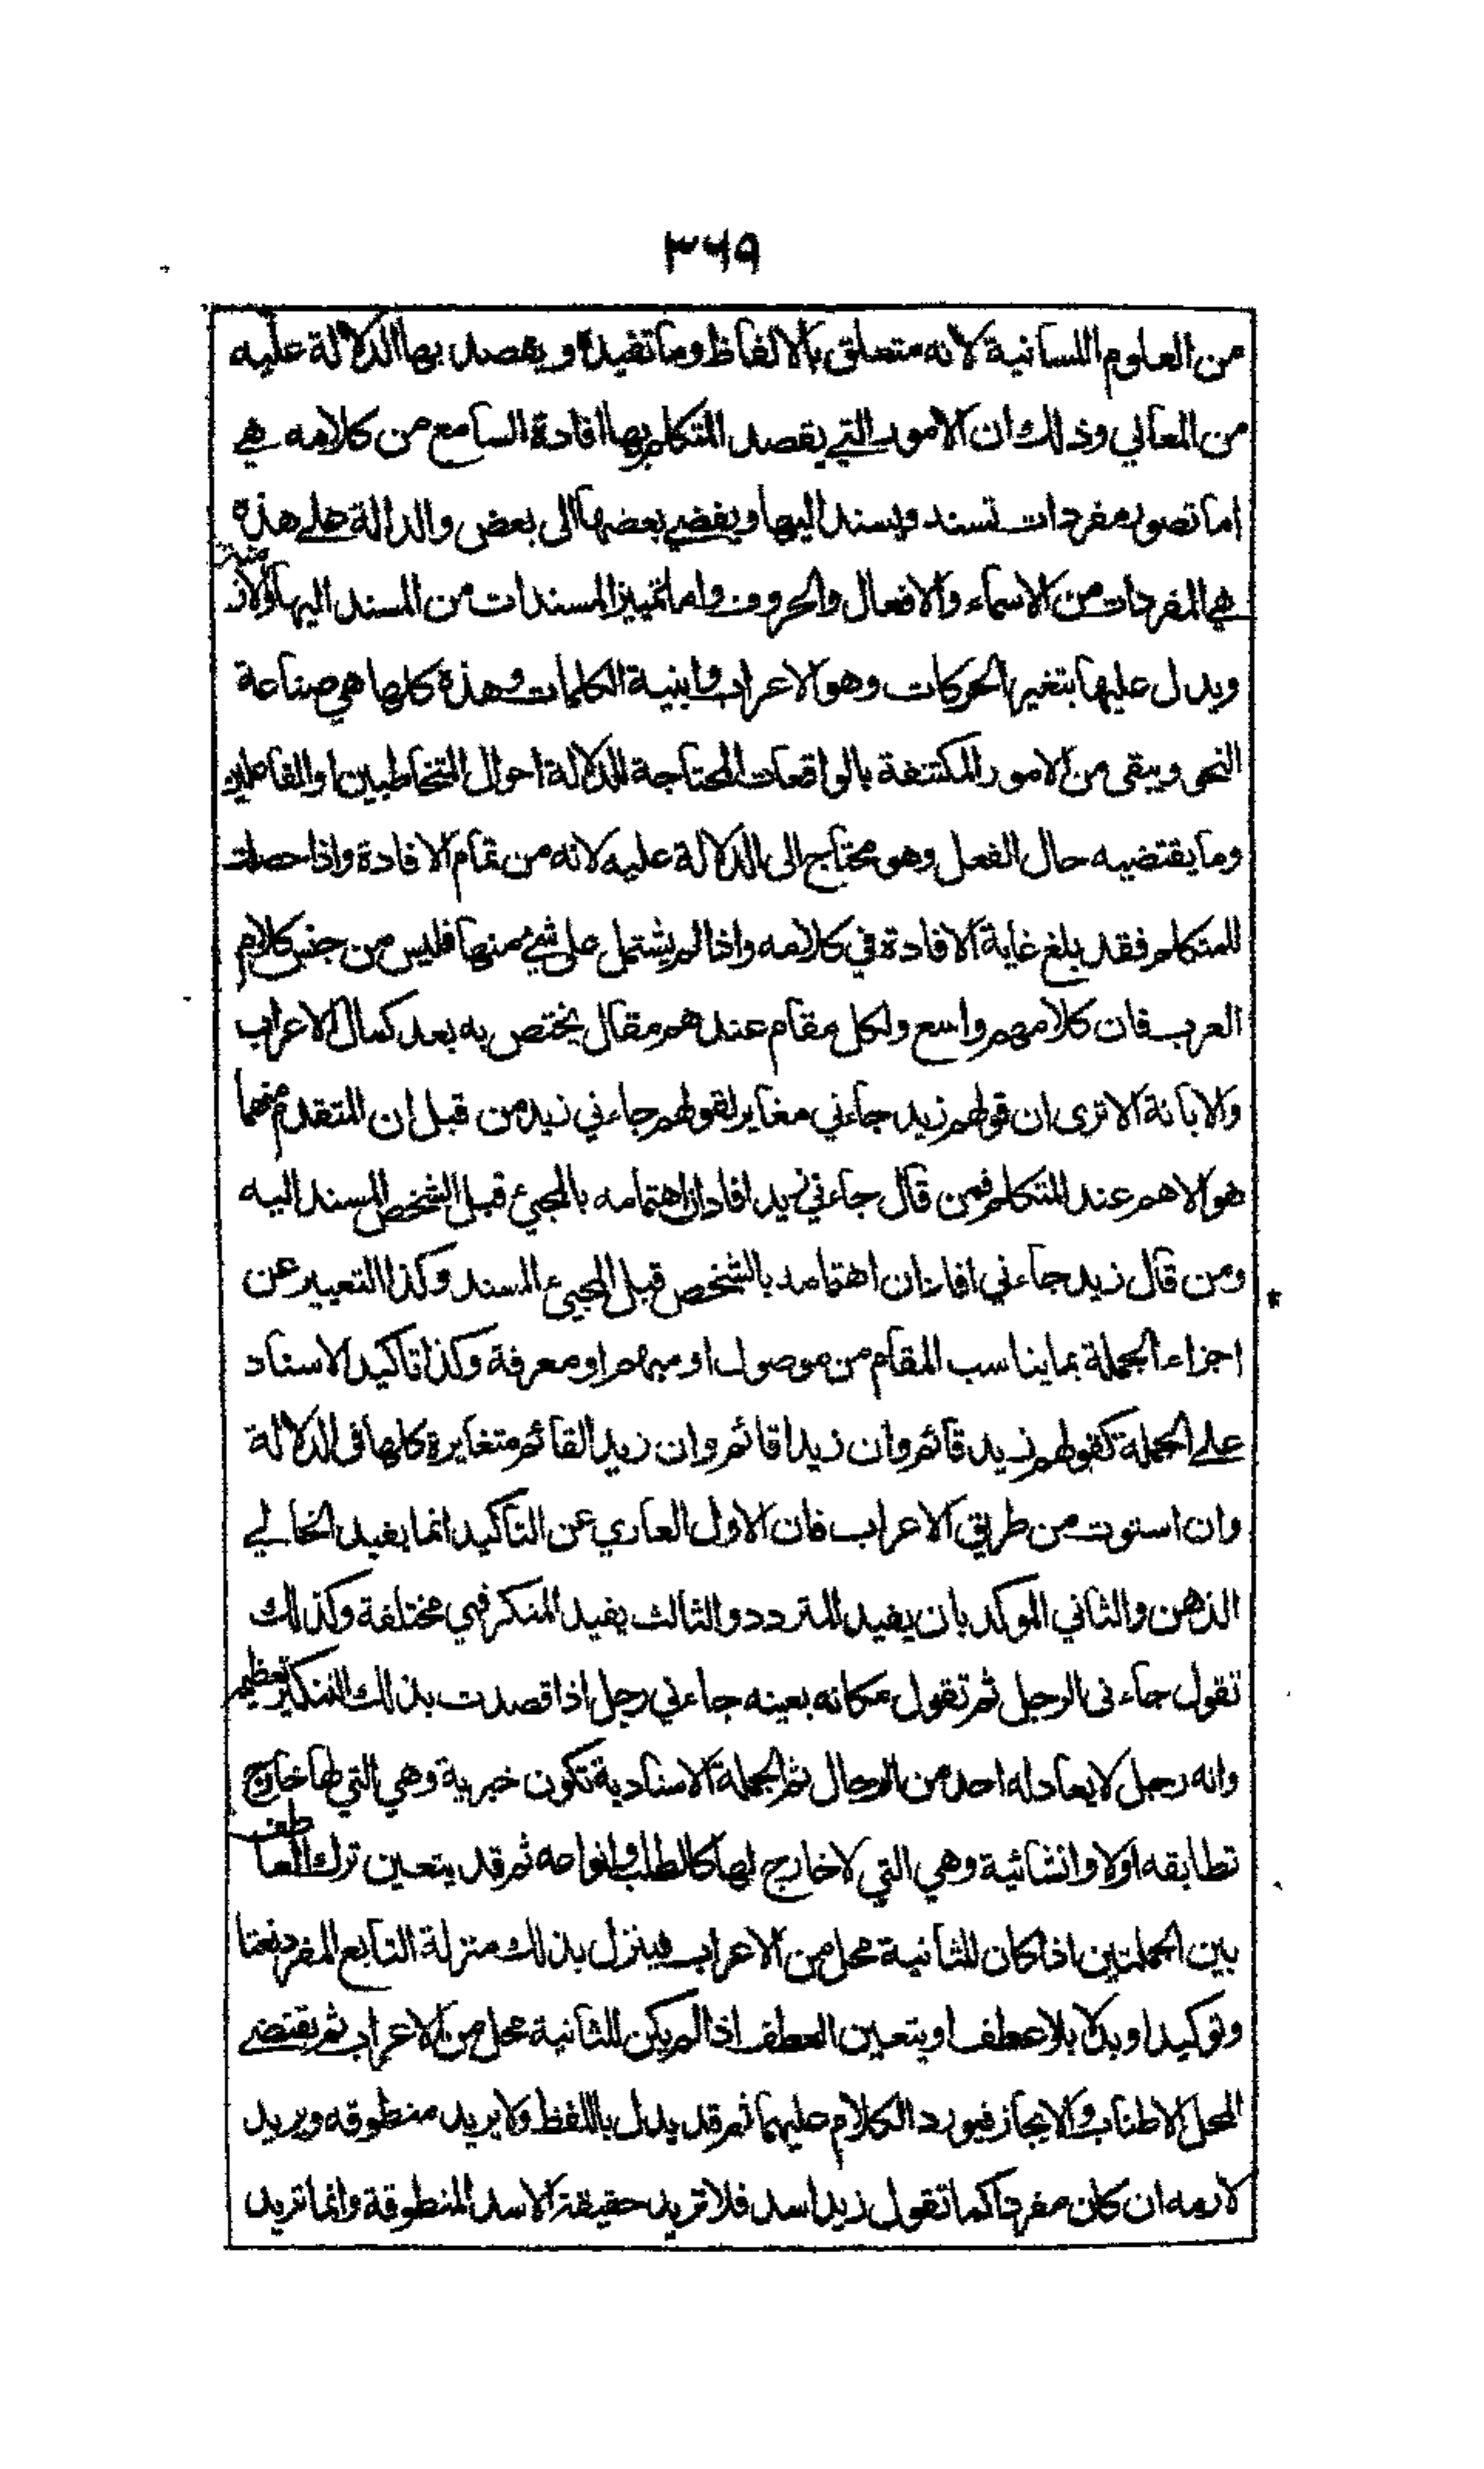 ٣٦٩
من العلوم اللسانية لانه متعلق بالالفاظ وما تفيده و يقصد بها الدلالة عليه
من المعاني وذلك ان الامور التي يقصد المتكلم بها افادة السامع من كلامه هي
اما تصور مفردات تسند ويسند اليها ويفضي بعضها الى بعض والدالة على هذه
هي المفردات من الاسماء والافعال والحروف واما تمييز المسندات من المسند اليها والازمنة
ويدل عليها بتغير الحركات وهو الاعراب وابنية الكلمات وهذه كلها هي صناعة
النحو ويبقى من الامور المكتنفة بالواقعات المحتاجة للدلالة احوال المتخاطبين او الفاعلين
وما يقتضيه حال الفعل وهو محتاج الى الدلالة عليه لانه من تمام الافادة واذا حصلت
للمتكلم فقد بلغ غاية الافادة في كلامه واذا لم يشتمل على شيء منها فليس من جنس كلام
العرب فان كلامهم واسع ولكل مقام عندهم مقال يختص به بعد كمال الاعراب
والابانة الا ترى ان قولهم زيد جاءني مغاير لقولهم جاءني زيد من قبل ان المتقدم منهما
هو الاهم عند المتكلم فمن قال جاءني زيد افاد ان اهتمامه بالمجيء قبل الشخص المسند اليه
ومن قال زيد جاءني افاد ان اهتمامه بالشخص قبل المجيء المسند وكذا التعبير عن
اجزاء الجملة بما يناسب المقام من موصول او مبهم او معرفة وكذا تاكيد الاسناد
على الجملة كقولهم زيد قائم وان زيدا قائم وان زيد القائم متغايرة كلها في الدلالة
وان استوت من طريق الاعراب فان الاول العاري عن التاكيد انما يفيد الخالي
الذهن والثاني الموكد بان يفيد المتردد والثالث يفيد المنكر فهي مختلفة وكذلك
تقول جاءنى الرجل ثم تقول مكانه بعينه جاءني رجل اذا قصدت بذلك التنكير تعظيمه
وانه رجل لا يعادله احد من الرجال ثم الجملة الاسنادية تكون خبرية وهي التي لها خارج
تطابقه اولا وانشائية وهي التي لا خارج لها كالطلب وانواعه ثم قد يتعين ترك العاطف
بين الجملتين اذا كان للثانية محل من الاعراب فينزل بذلك منزلة التابع المفرد نعتا
وتوكيدا وبدلا بلا عطف او يتعين العطف اذا لم يكن للثانية محل من الاعراب ثم يقتضي
المحل الاطناب والايجاز فيورد الكلام عليهما ثم قد يدل باللفظ ولا يريد منطوقه ويريد
لازمه ان كان مفردا كما تقول زيد اسد فلا تريد حقيقة الاسد المنطوقة وانما تريد